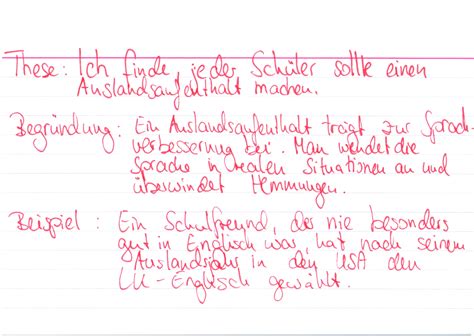 These: Ich finde, jeder Schüler sollte einen
Auslandsaufenthalt machen.
Begründung: Ein Auslandsaufenthalt trägt zur Sprach-
verbesserung bei. Man wendet die
Sprache in realen Situationen an und
überwindet Hemmungen.
Beispiel: Ein Schulfreund, der nie besonders
gut in Englisch war, hat nach seinem
Auslandsjahr in den USA den
LK-Englisch gewählt.